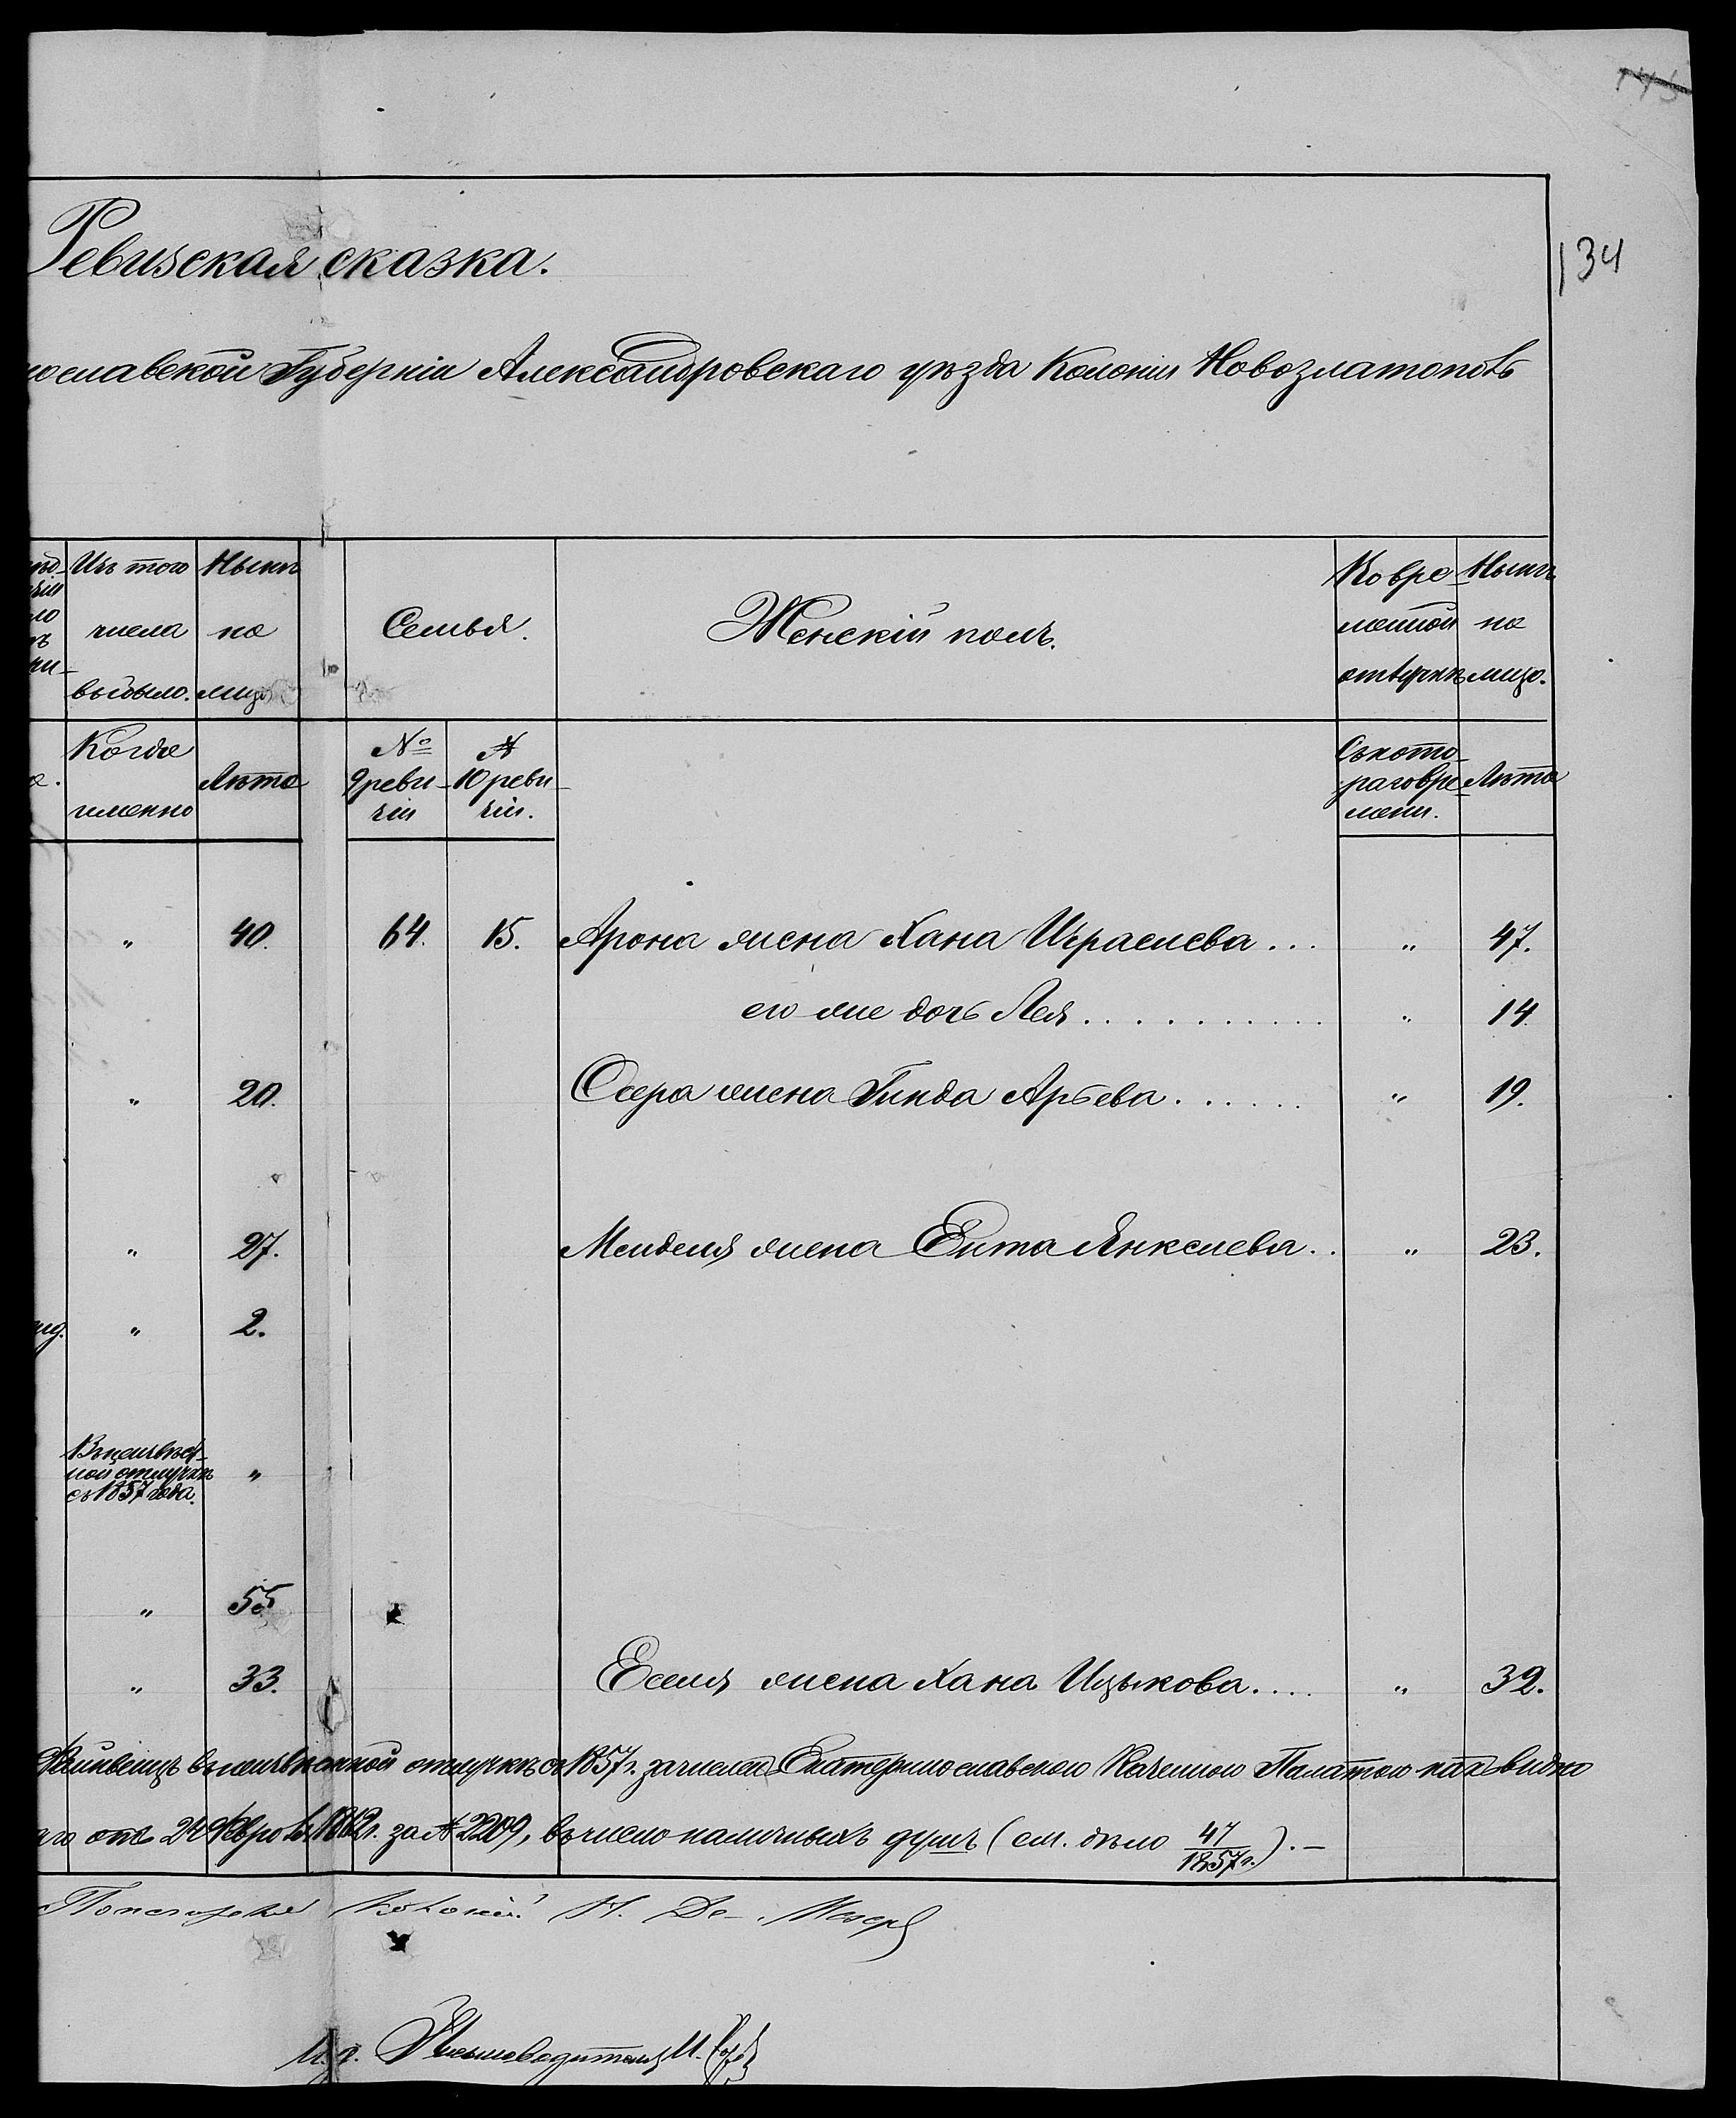 145
134
Ревизская сказка.
ославской Губерніи Александровскаго уѣзда Колоніи Новозлатополь
Изъ того числа выбыло.
Нынѣ на лицо
Семья.
Женскій полъ.
Во временной отлучкѣ
Нынѣ на лицо.
Когда именно
Лѣта
№ 9 ревизіи
№ 10 ревизіи.
Съ котораго времени.
Лѣта
" 40. 64. 15. Арона жена Хана Израелева... " 47.
его же дочь Лея........... " 14
" 20. Осера жена Гинда Арьева...... " 19.
" 27. Менделя жена Ента Янкелева.. " 23.
" 2.
Въ неизвѣстной отлучкѣ съ 1857 года. "
" 55
" 33. Еселя жена Хана Ицыкова.... " 32.
въ неизвѣстной отлучкѣ съ 1857 г. зачислен Екатеринославскою Казенною Палатою какъ видно
отъ 24 1862 г. за № 2209, въ число наличныхъ душъ (см. дѣло 47/1857 г.). —
колоній
И. д. Письмоводителя И.